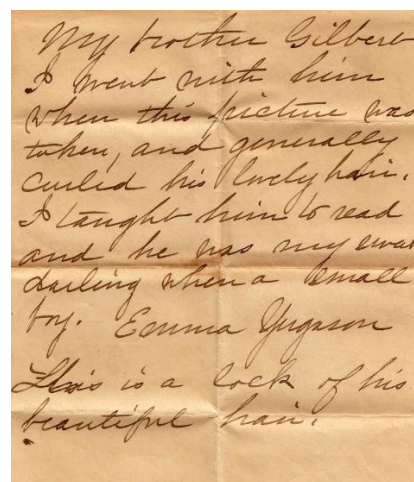 My brother Gilbert
I went with him
when this picture was
taken, and generally
curled his lovely hair.
I taught him to read
and he was my
darling when a small
boy. Emma
This is a lock of his
beautiful hair.